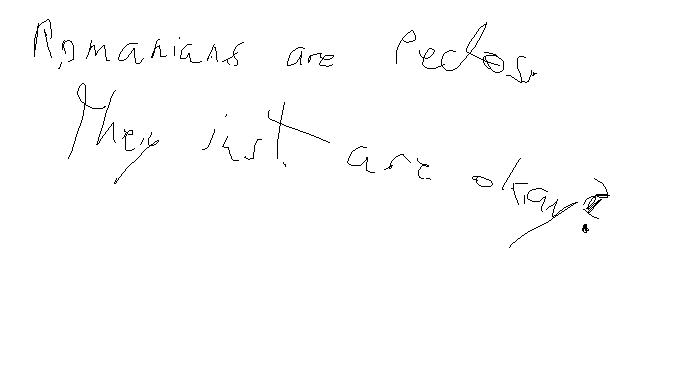 Romanians are Pedos.
They just are okay?